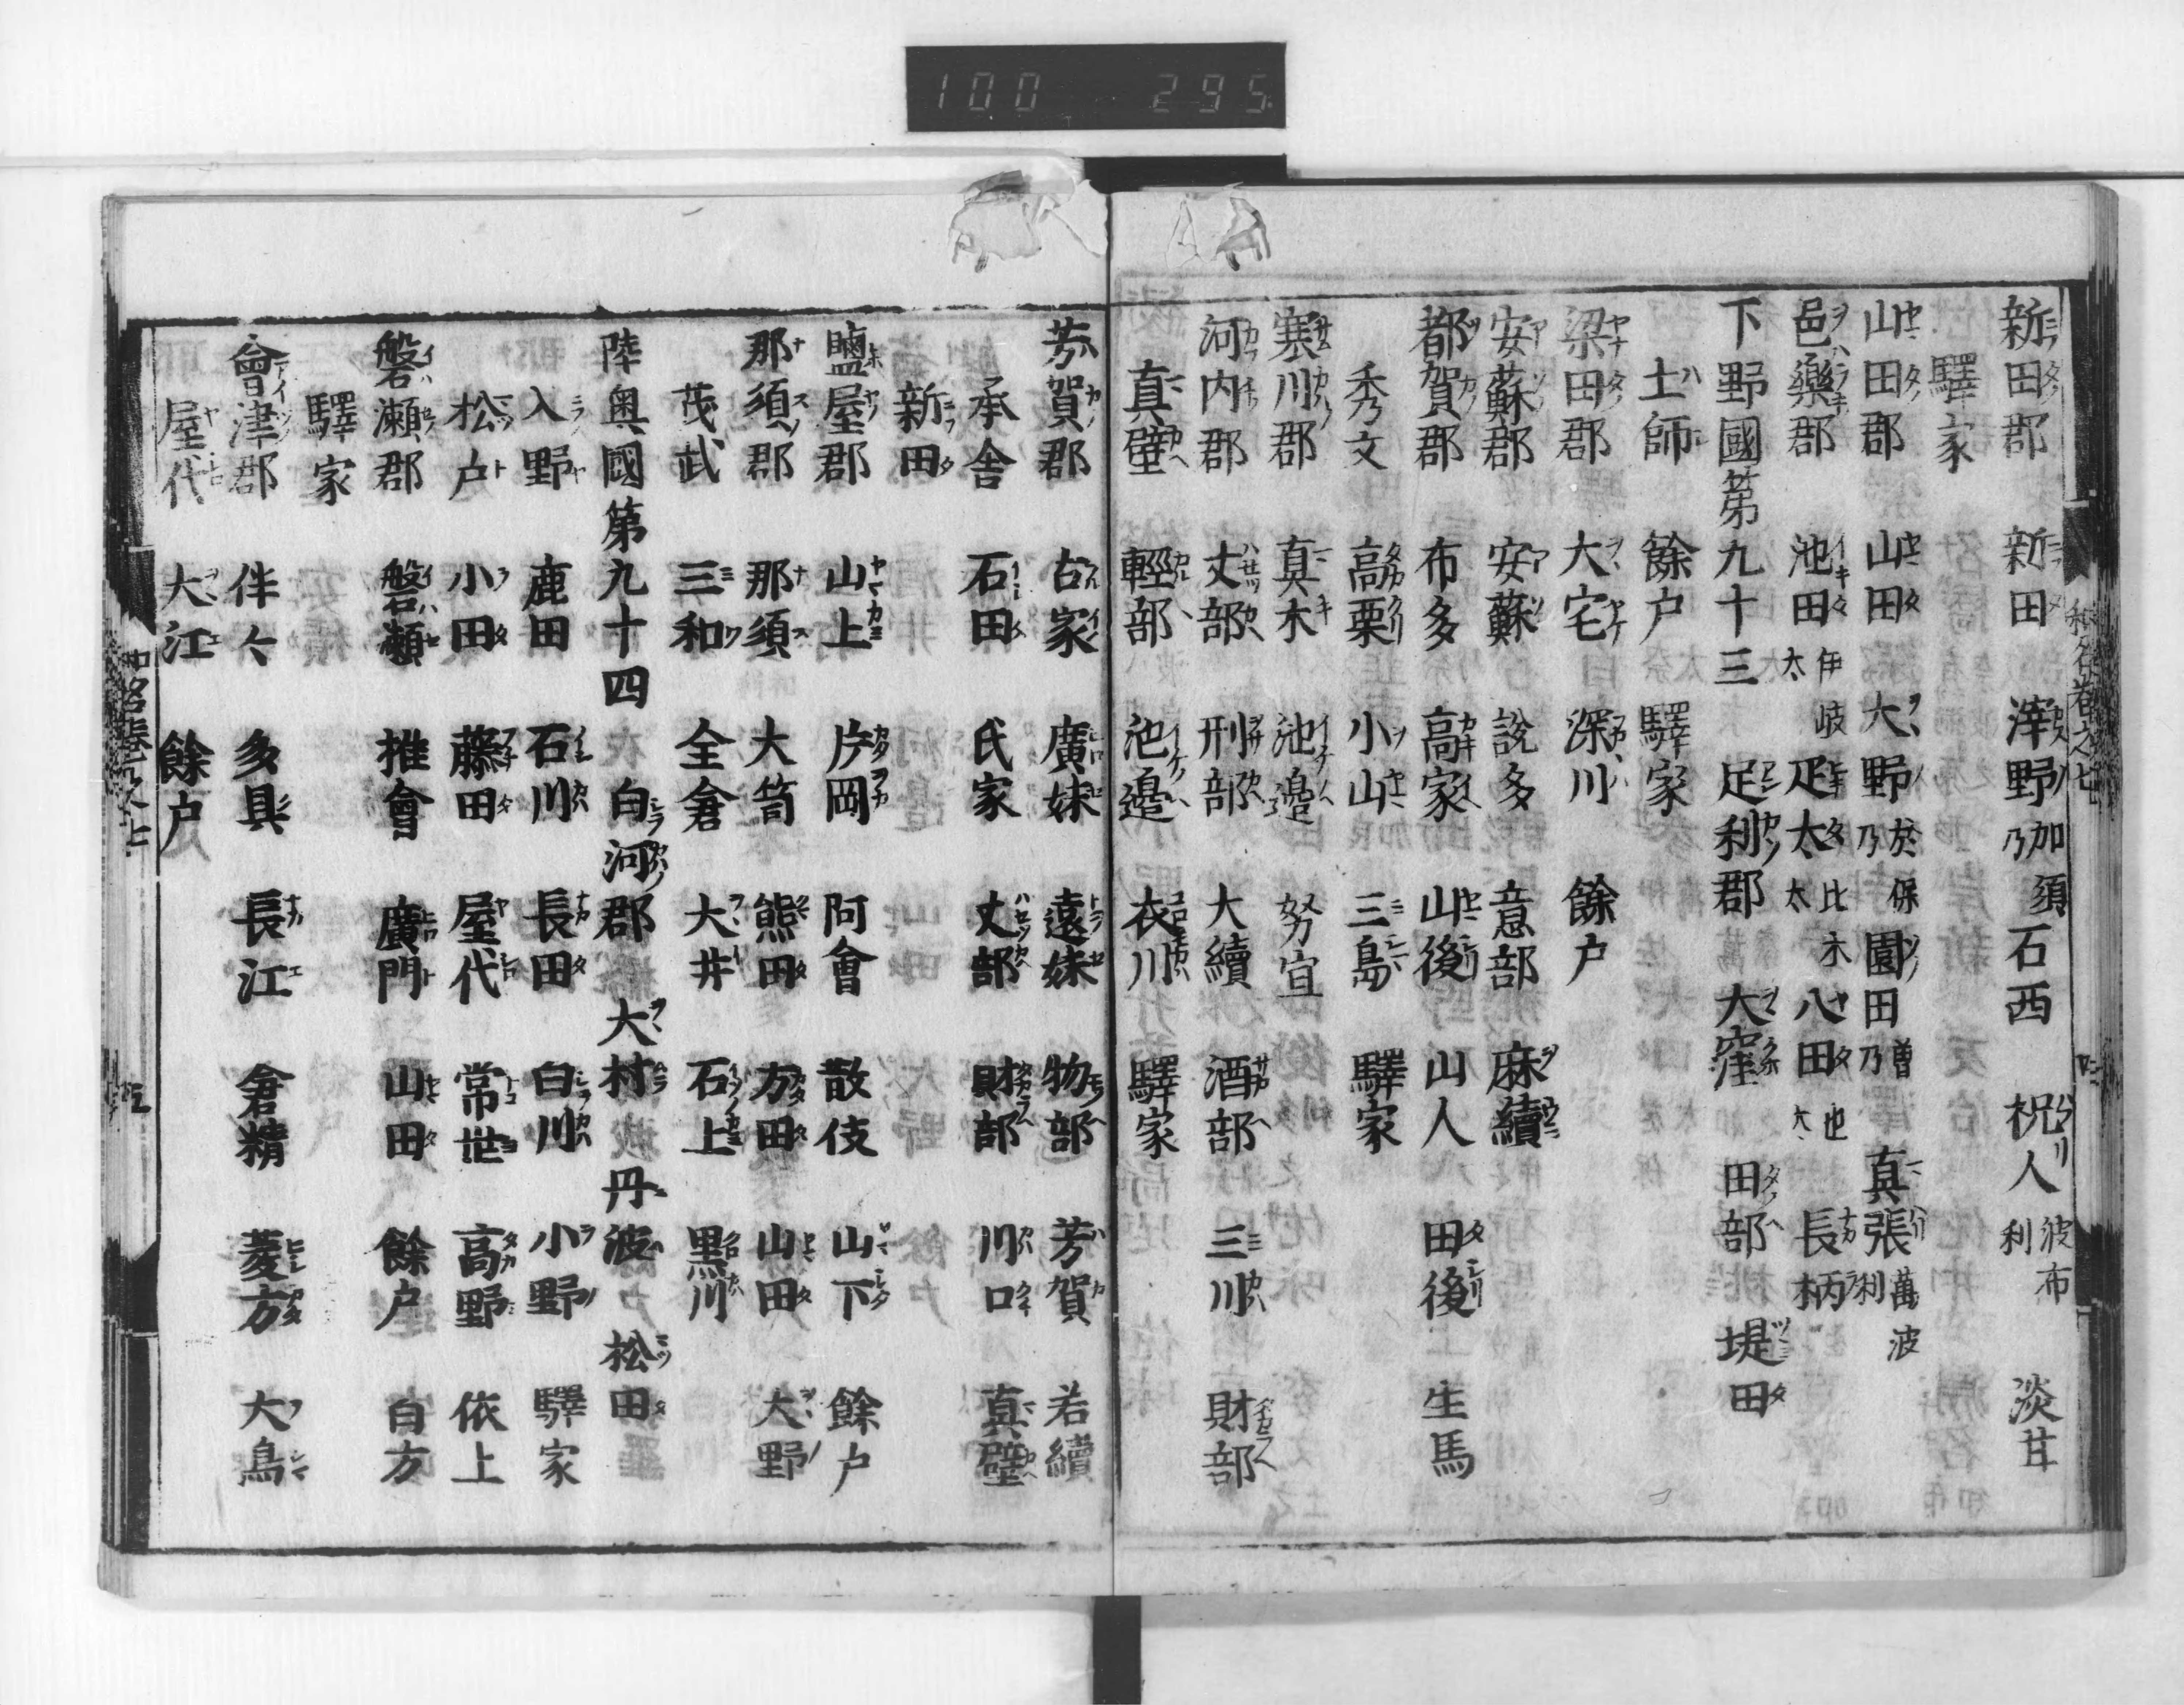 100 295
新田郡 新田 滓野加須乃 石西 祝人波布利 淡甘
驛家
山田郡 山田 大野於保乃 園田曽乃 真張萬波利
邑樂郡 池田伊岐太 疋太比木太 八田也太 長柄
下野國第九十三 足利郡 大窪 田部 堤田
土師 餘户 驛家
梁田郡 大宅 深川 餘户
安蘇郡 安蘇 説多 意部 麻續
都賀郡 布多 高家 山後 山人 田後 生馬
秀文 高栗 小山 三島 驛家
寒川郡 真木 池邉 努宜
河内郡 丈部 刑部 大續 酒部 三川 財部
真壁 輕部 池邉 衣川 驛家
芳賀郡 古家 廣妹 遠妹 物部 芳賀 若續
承舎 石田 氏家 丈部 財部 川口 真壁
新田
鹽屋郡 山上 片岡 阿會 散伎 山下 餘户
那須郡 那須 大笥 熊田 方田 山田 大野
茂武 三和 全倉 大井 石上 黒川
陸奥國第九十四 白河郡 大村 丹波 松田
入野 鹿田 石川 長田 白川 小野 驛家
松户 小田 藤田 屋代 常世 高野 依上
磐瀬郡 磐瀬 推會 廣門 山田 餘户 白方
驛家
會津郡 伴々 多具 長江 倉精 菱方 大島
屋代 大江 餘户